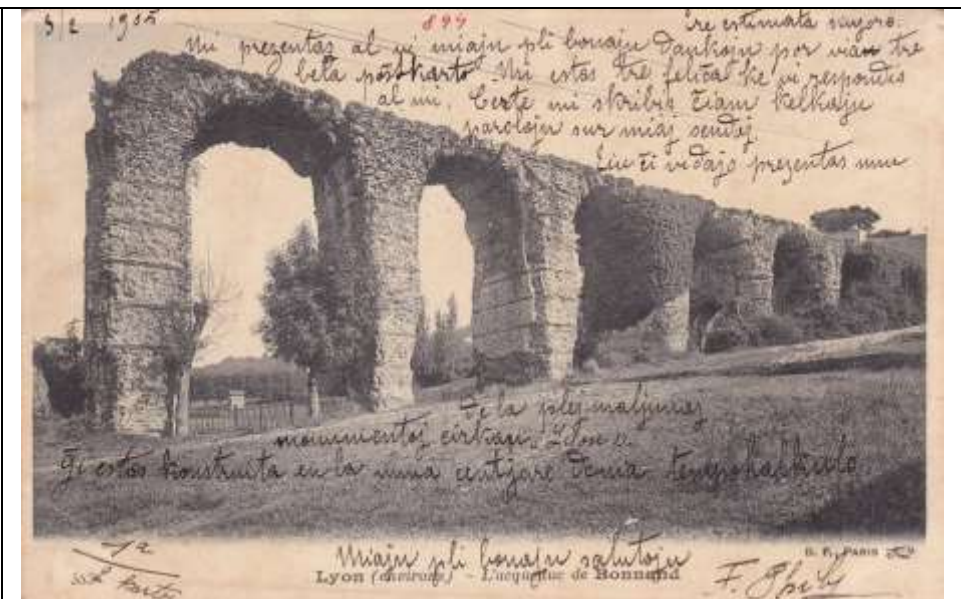 5/2 190
899
Tre estimata sinjoro.
Mi prezentas al vi miajn pli bonajn dankojn por vian tre
bela postkarto. Mi estas tre feliĉa ke vi respondis
al mi. Certe mi skribos ĉiam kelkajn
parolojn sur miaj sendaj.
ĉi vidaĵo prezentas
de la plej maljunaj
monumentoj
Ĝi estas konstruita en la unua centjare tempokalkulo
1a karto
Miajn pli bonajn salutojn
Lyon (environs) - L'aqueduc de Bonnand
B. F., PARIS
F.